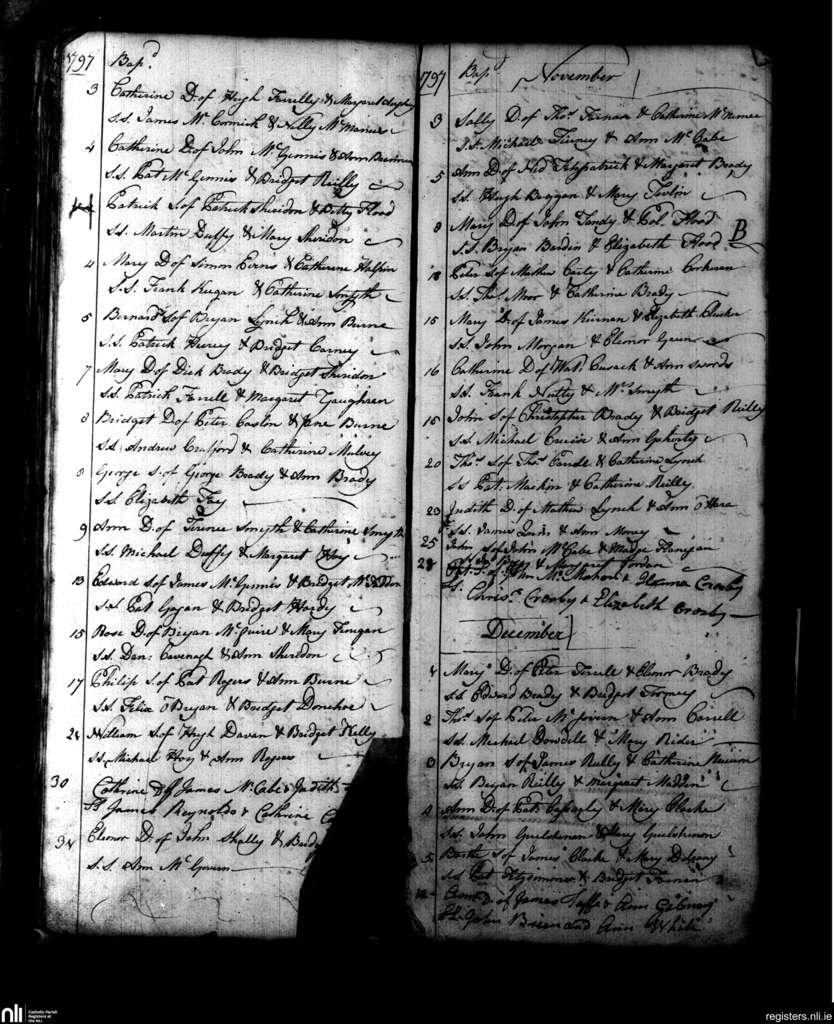 1797 Bapd.
3 Catherine D. of Hugh Farrelly & Margaret
s.s. James Mc. Cormick & Nelly Mc Manus
4 Catherine D. of John Mc Gennis & Ann
s.s. Pat Mc Gennis & Bridget Reilly
Patrick S. of Patrick Sheridon & Betty Flood
s.s. Martin Duffy & Mary Sheridon
4 Mary D. of Simon Evins & Catherine Halpin
S.S. Frank Keegan & Catherine Smyth
5 Bernard S. of Bryan Lynch & Ann Burne
s.s. Patrick & Bridget Carney
7 Mary D. of Dick Brady & Bridget Sheridon
s.s. Patrick Farrell & Margaret Gaughren
8 Bridget D. of Peter Caslon & Jane Burne
s.s. Andrew Crafford & Catherine Mulvey
8 George S. of George Brady & Ann Brady
s.s. Elizabeth Fay
9 Ann D. of Terence Smyth & Catherine Smyth
s.s. Michael Duffy & Margaret Hoy
13 Edward S. of James Mc. Gennis & Bridget
s.s. Pat Gogan & Bridget Hardy
15 Rose D. of Bryan Mc. Guire & Mary Finigan
s.s. Dan: Cavenagh & Ann Sheridon
17 Philip S. of Pat Rogers & Ann Burne
s.s. Felix O'Bryan & Bridget Donohoe
28 William S. of Hugh Davan & Bridget Kelly
s.s. Michael Hoy & Ann Rogers
30 Cathrine D. of James Mc. Cabe & Judith
Ss James Reynolds & Cathrine
Elenor D. of John Shally &
s.s. Ann Mc. Govern
1797 Bapd. November
3 Sally D. of Thos. Farnan & Catherine Mc. Namee
S.S. Michael Tinney & Ann Mc. Cabe
5 Ann D. of Ned Fitzpatrick & Margaret Brady
s.s. Hugh Boggan & Mary
8 Mary D. of John Tandy & Flood
s.s. Bryan Bardin & Elizabeth Flood B
Peter S. of Mathew & Catherine Corkeran
s.s. Thos. Moor & Catherine Brady
15 Mary D. of James Kiernan & Elizabeth
s.s. John Morgan & Elenor Green
16 Catherine D. of Wat. Cusack & Ann Swords
s.s. Frank Nulty & Mrs. Smyth
15 John S. of Christopher Brady & Bridget Reilly
s.s. Michael & Ann
20 Thos. S. of Thos. & Catherine Lynch
s.s. Pat. Mackin & Catherine Reilly
20 Judith D. of Mathew Lynch & Ann O'Hara
s.s. James Quin & Ann Money
25 John S. of John Mc. Cabe & Madge Flanegan
& Margaret Jordan
28 S. of John Mc. Mahon & Elenor Crosby
S. Chrisr. Crosby & Elizabeth Crosby
December
Mary D. of Peter Terrell & Elenor Brady
s.s. Edward Brady & Bridget Tormey
2 Thos. S. of Peter Mc. Govern & Ann Carrell
s.s. Michael Dowdell & Mary Rider
Bryan S. of James Reilly & Catherine
s.s. Bryan Reilly & Margaret Madden
4 Ann D. of Pat. Caffarly & Mary Clarke
s.s. John Guilshenon & Mary Guilshenon
5 Bartle S. of James Clarke & Mary Delany
s.s. Pat Fitzsimons & Bridget Farnan
12 Ann D. of James Taffe & Ann Gibney
Ss. John Brien and Ann White
nli
Catholic Parish
Registers at
the NLI
registers.nli.ie